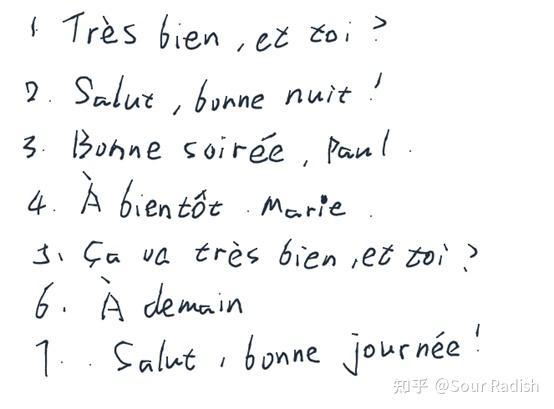 1. Très bien, et toi ?
2. Salut, bonne nuit !
3. Bonne soirée, Paul.
4. À bientôt. Marie.
5. Ça va très bien, et toi ?
6. À demain
7. Salut, bonne journée !
知乎 @Sour Radish